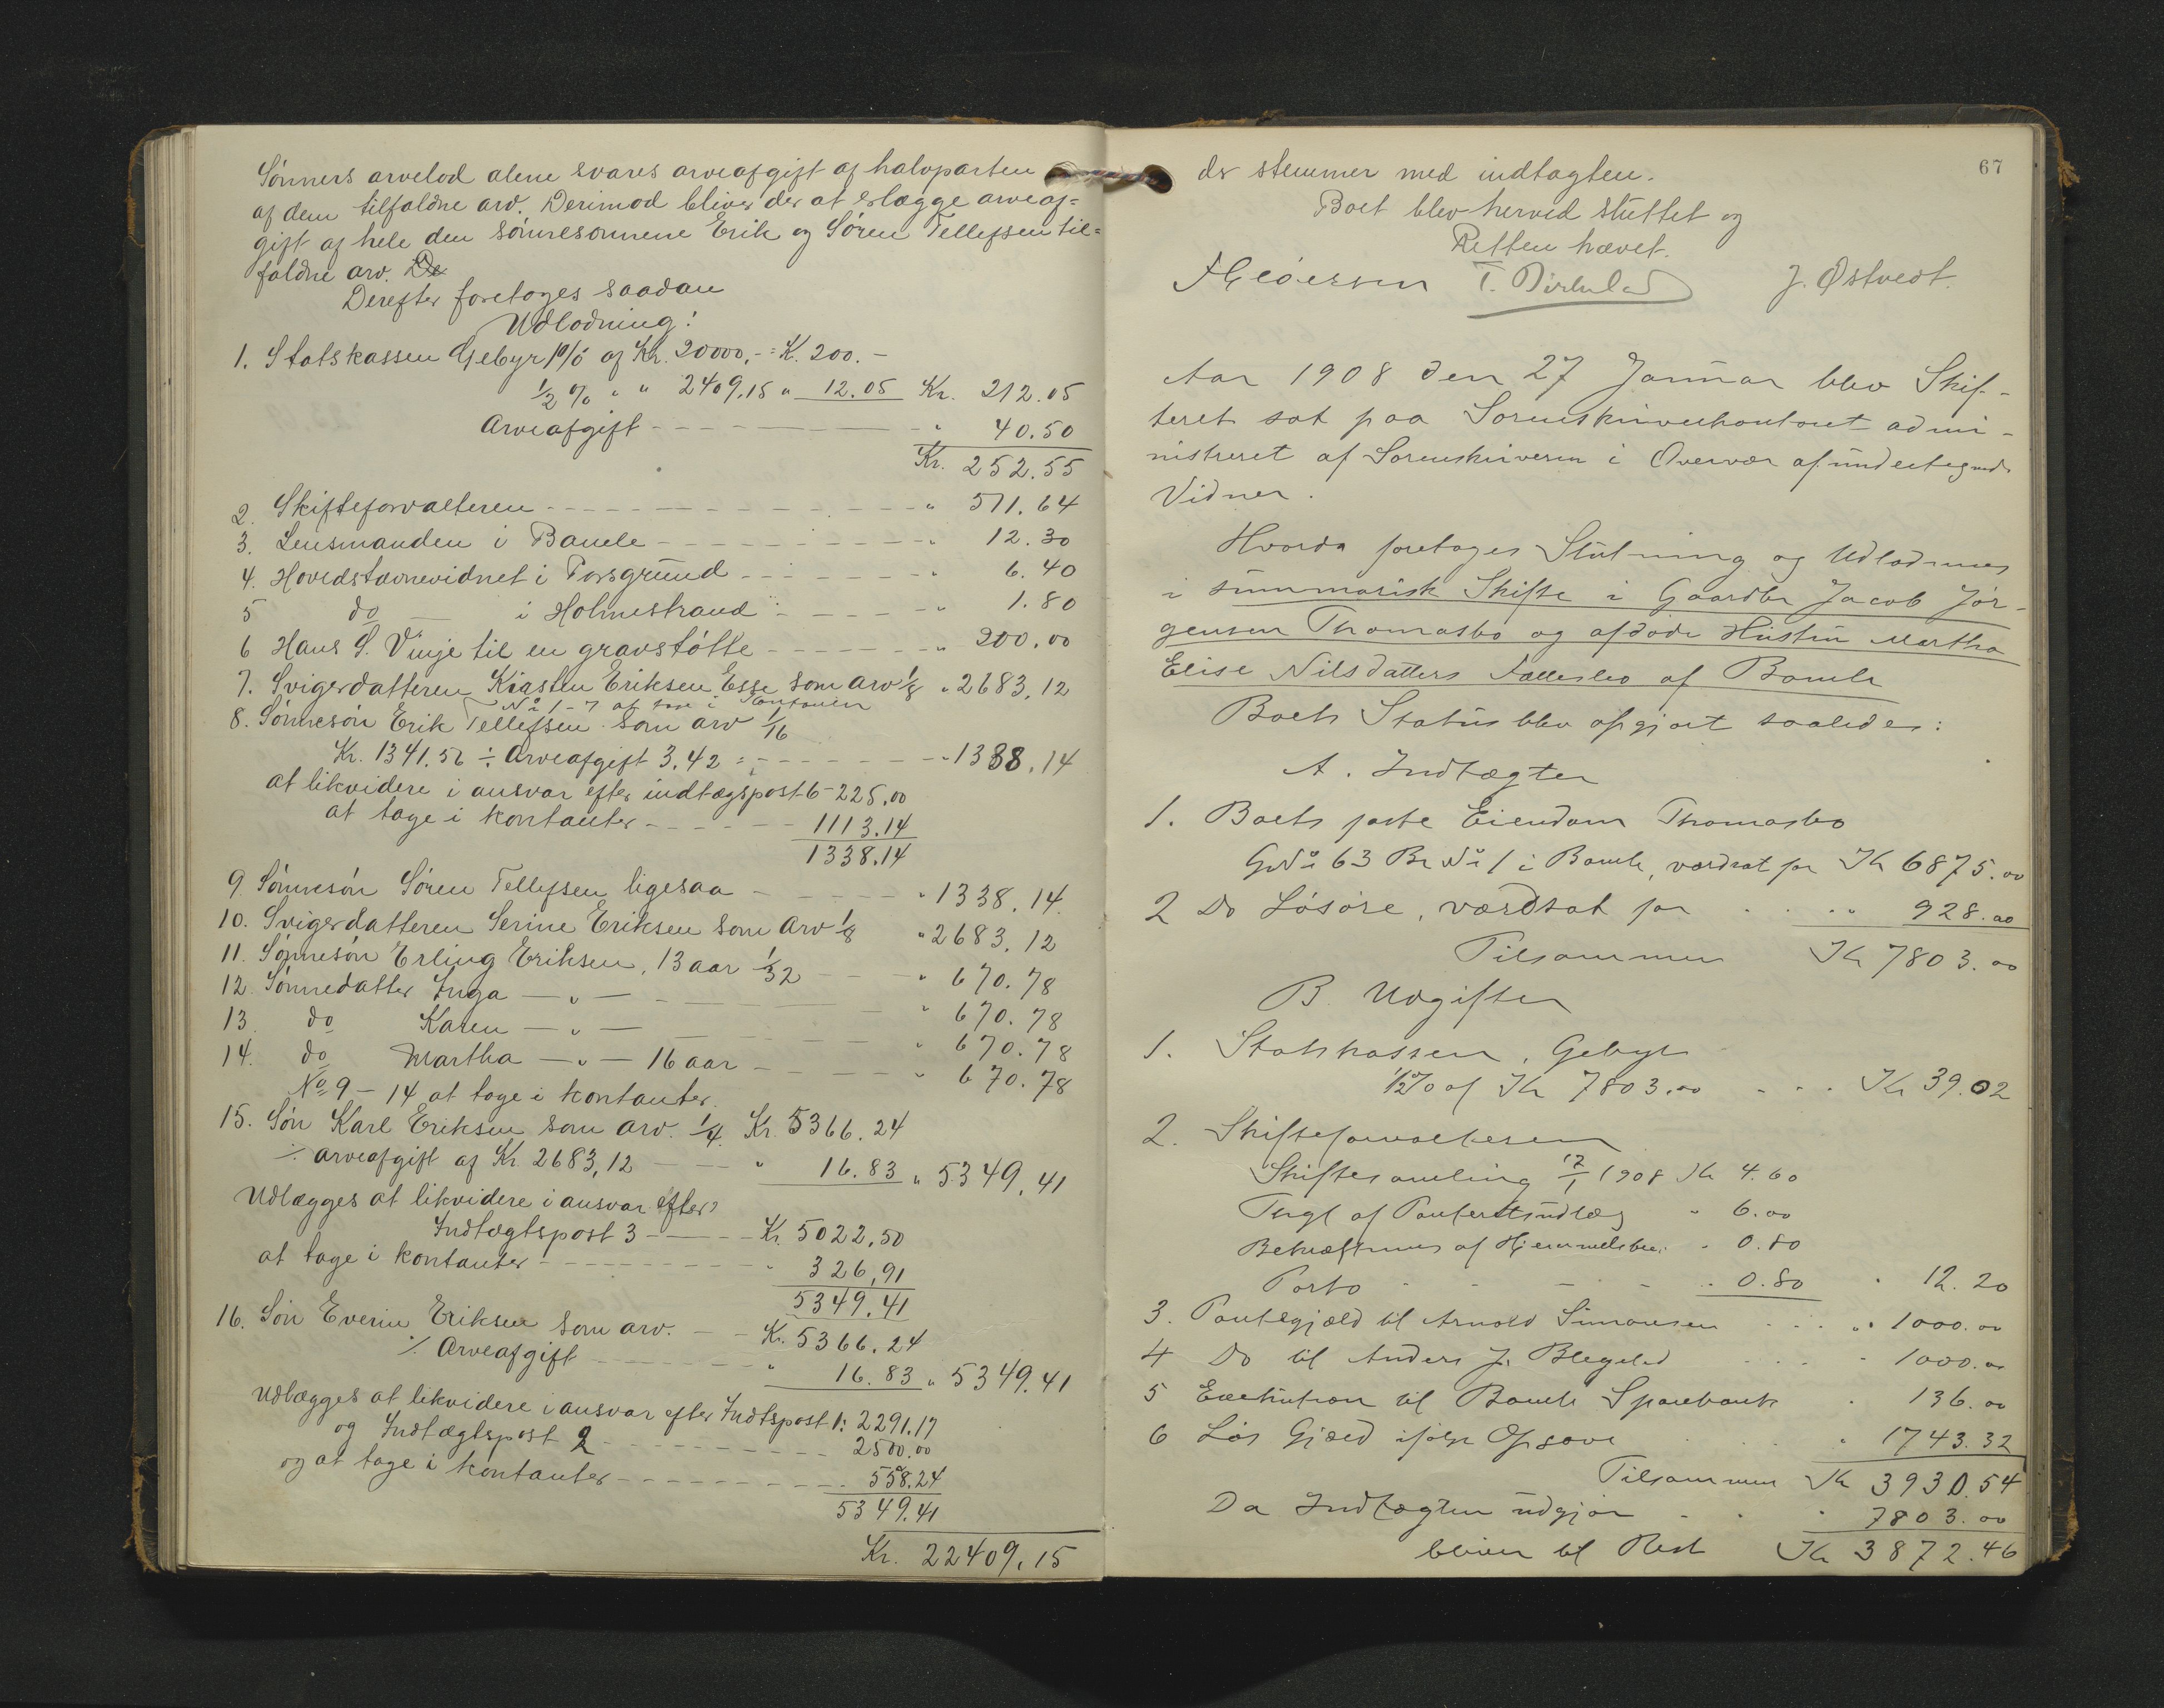 Sønners arvelod alene svares arveafgift af halvparten
af dem tilfaldne arv. Derimod bliver der at erlægge arveaf=
gift af hele den sønnesønnene Erik og Søren Tellefsen til=
faldne arv. De
Derefter foretages saadan
Udlodning:
1. Statskassen Gebyr 1% af Kr. 20000,- = K. 200.-
1/2 % " " 2409.15 " 12.05 Kr. 212.05
Arveafgift " 40.50
Kr. 252.55
2. Skifteforvalteren " 571.64
3. Lensmanden i Bamle " 12.30
4. Hovedstævnevidnet i Porsgrund " 6.40
5 do i Holmestrand " 1.80
6 Hans S. Vinje til en gravstøtte " 200.00
7. Svigerdatteren Kirsten Eriksen Esse som arv 1/8 " 2683,12
No 1-7 at tage i Kontanter
8. Sønnesøn Erik Tellefsen som arv 1/16
Kr. 1341.56 ÷ Arveafgift 3.42 = " 1338,14
at likvidere i ansvar efter indtægspost 6 - 225,00
at tage i kontanter 1113.14
1338.14
9. Sønnesøn Søren Tellefsen ligesaa " 1338.14
10. Svigerdatteren Serine Eriksen som arv 1/8 " 2683,12
11. Sønnesøn Erling Eriksen, 13 aar 1/32 " 670.78
12. Sønnedatter Inga — " — " 670.78
13. do Karen — " — " 670.78
14. do Martha — " — 16 aar " 670.78
No 9 - 14 at tage i kontanter.
15. Søn Karl Eriksen som arv. 1/4. Kr. 5366.24
÷ arveafgift af Kr. 2683,12 " 16.83 " 5349,41
Udlægges at likvidere i ansvar efter
Indtægtspost 3 Kr. 5022,50
at tage i kontanter " 326,91
5349.41
16. Søn Evenin Eriksen som arv. Kr. 5366.24
÷ Arveafgift " 16.83 " 5349.41
Udlægges at likvidere i ansvar efter Indtspost 1: 2291.17
og Indtægtspost 2 2500.00
og at tage i kontanter 558.24
5349.41
Kr. 22409,15
67
der stemmer med indtægten.
Boet blev herved sluttet og
Retten hævet.
J. Østvedt.
Aar 1908 den 27 Januar blev Skif-
teret sat paa Sorenskriverkontoret admi-
nistreret af Sorenskriveren i Overvær af undertegnede
Vidner.
Hvorda foretages Slutning og Udlodning
i summarisk Skifte i Gaardbr Jacob Jør-
gensen Thomasbo og afdøde Hustru Martha
Elise Nilsdatters Fællesbo af Bamle
Boets Status blev opgjort saaledes:
A. Indtægter
1. Boets faste Eiendom Thomasbo
GNo 63 Br No 1 i Bamle, værdsat for Kr 6875.00
2 Do Løsøre, værdsat for " 928.00
Tilsammen Kr 7803.00
B. Udgifter
1. Statskassen, Gebyr
1/2% af Kr 7803.00 Kr 39.02
2. Skifteforvalteren
Skiftesamling 17/1 1908 Kr 4.60
Tingl af Panteretsudlæg " 6.00
Bekræftning af Hjemmelsbr. " 0.80
Porto " 0.80 " 12.20
3. Pantegjæld til Arnold Simonsen " 1000.00
4 Do til Anders J. " 1000.00
5 Exekution til Bamle Sparebank " 136.00
6 Løs Gjæld ifølge Opgave " 1743.32
Tilsammen Kr 3930.54
Da Indtægten udgjør " 7803.00
bliver til Rest Kr 3872.46